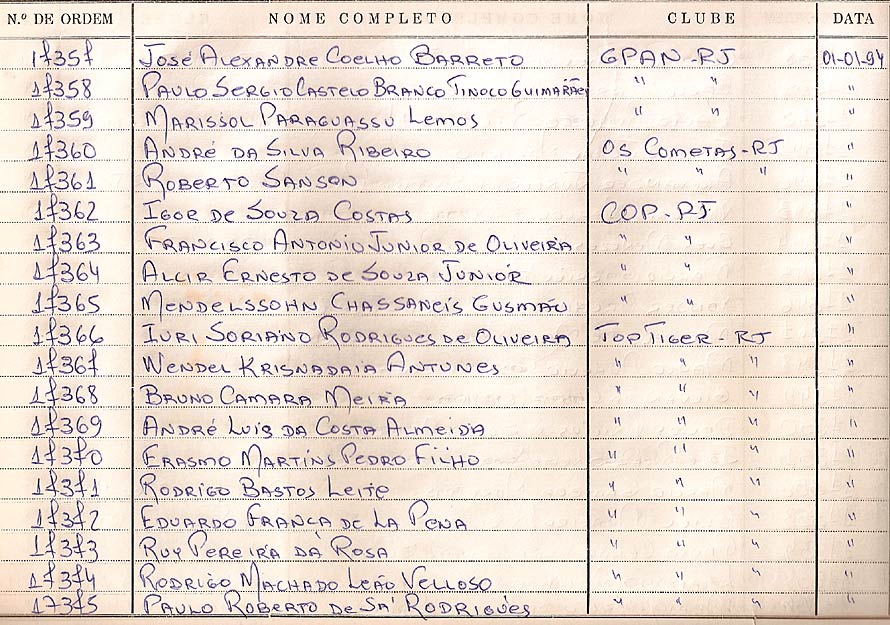 N.º DE ORDEM NOME COMPLETO CLUBE DATA
17357 José Alexandre Coelho Barreto GPAN-RJ 01-01-94
17358 Paulo Sergio Castelo Branco Tinoco Guimarães " " "
17359 Marissol Paraguassu Lemos " " "
17360 André da Silva Ribeiro Os Cometas-RJ "
17361 Roberto Sanson " " " "
17362 Igor de Souza Costas COP-RJ "
17363 Francisco Antonio Junior de Oliveira " " "
17364 Alcir Ernesto de Souza Junior " " "
17365 Mendelssohn Chassaneis Gusmão " " "
17366 Iuri Soriano Rodrigues de Oliveira Top Tiger-RJ "
17367 Wendel Krisnadaia Antunes " " " "
17368 Bruno Camara Meira " " " "
17369 André Luis da Costa Almeida " " " "
17370 Erasmo Martins Pedro Filho " " " "
17371 Rodrigo Bastos Leite " " " "
17372 Eduardo Franca de La Pena " " " "
17373 Ruy Pereira da Rosa " " " "
17374 Rodrigo Machado Leão Velloso " " " "
17375 Paulo Roberto de Sá Rodrigues " " " "